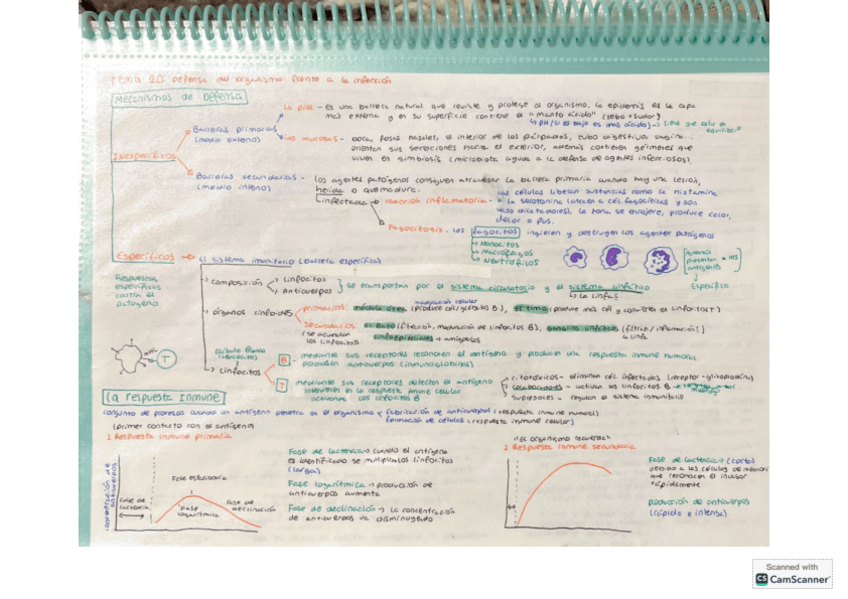 Tema 20: Defensa del organismo frente a la infección
Mecanismos de defensa
La piel - Es una barrera natural que reviste y protege al organismo, la epidemis es la capa
más externa y en su superficie contiene el "manto ácido" (sebo + sudor)
Barreras primarias
(medio externo)
Las mucosas - boca, fosas nasales, el interior de los párpados, tubo digestivo, vagina...
vierten sus secreciones hacia el exterior, además contienen gérmenes que
viven en simbiosis (microbiota ayuda a la defensa de agentes infecciosos).
Inespecíficos
Barreras secundarias - Los agentes patógenos consiguen atravesar la barrera primaria cuando hay una lesión,
(medio interno)
herida o quemadura.
infectada
reacción inflamatoria - las células liberan sustancias como la histamina
o la serotonina
vasodilatadores), la zona se enrojece, produce calor,
dolor o pus.
Fagocitosis. Los fagocitos ingieren y destruyen los agentes patógenos
Monocitos
Macrófagos
Neutrófilos
Específicos → El sistema inmunitario (barrera específica)
Específico
Respuestas
específicas
contra el
patógeno
composición
Linfocitos
Anticuerpos
se transportan por el sistema circulatorio y el sistema linfático
↳ La linfa
órganos linfoides
primarios: médula ósea (produce cél. B), el timo
secundarios: el bazo (filtración, maduración de linfocitos B), ganglios linfáticos
(se acumulan
los linfocitos)
amígdalas
glóbulo blanco
(leucocitos)
Linfocitos
B - mediante sus receptores reconocen el antígeno y producen una respuesta inmune humoral
producen anticuerpos (inmunoglobinas)
T
T mediante sus receptores detectan el antígeno
respuesta inmune celular
activando los linfocitos B
citotóxicos - eliminan cél. infectadas (receptor-glicoproteína)
colaboradores - activan los linfocitos B
supresores - regulan el sistema inmunitario
La respuesta inmune
conjunto de procesos cuando un antígeno penetra en el organismo
fabricación de anticuerpos (respuesta inmune humoral)
formación de células (respuesta inmune celular)
(primer contacto con el antígeno)
1 Respuesta inmune primaria
concentración de
anticuerpos
Fase de
latencia
Fase estacionaria
Fase
logarítmica
Fase de
declinación
Fase de latencia → cuando el antígeno
es identificado se multiplican los linfocitos
(larga)
Fase logarítmica → producción de
anticuerpos aumenta
Fase de declinación → la concentración
de anticuerpos va disminuyendo
"el organismo recuerda"
2 Respuesta inmune secundaria
Fase de latencia (corta)
debido a las células de memoria
que reconocen el invasor
rápidamente
producción de anticuerpos
(rápida e intensa)
Scanned with
CS CamScanner